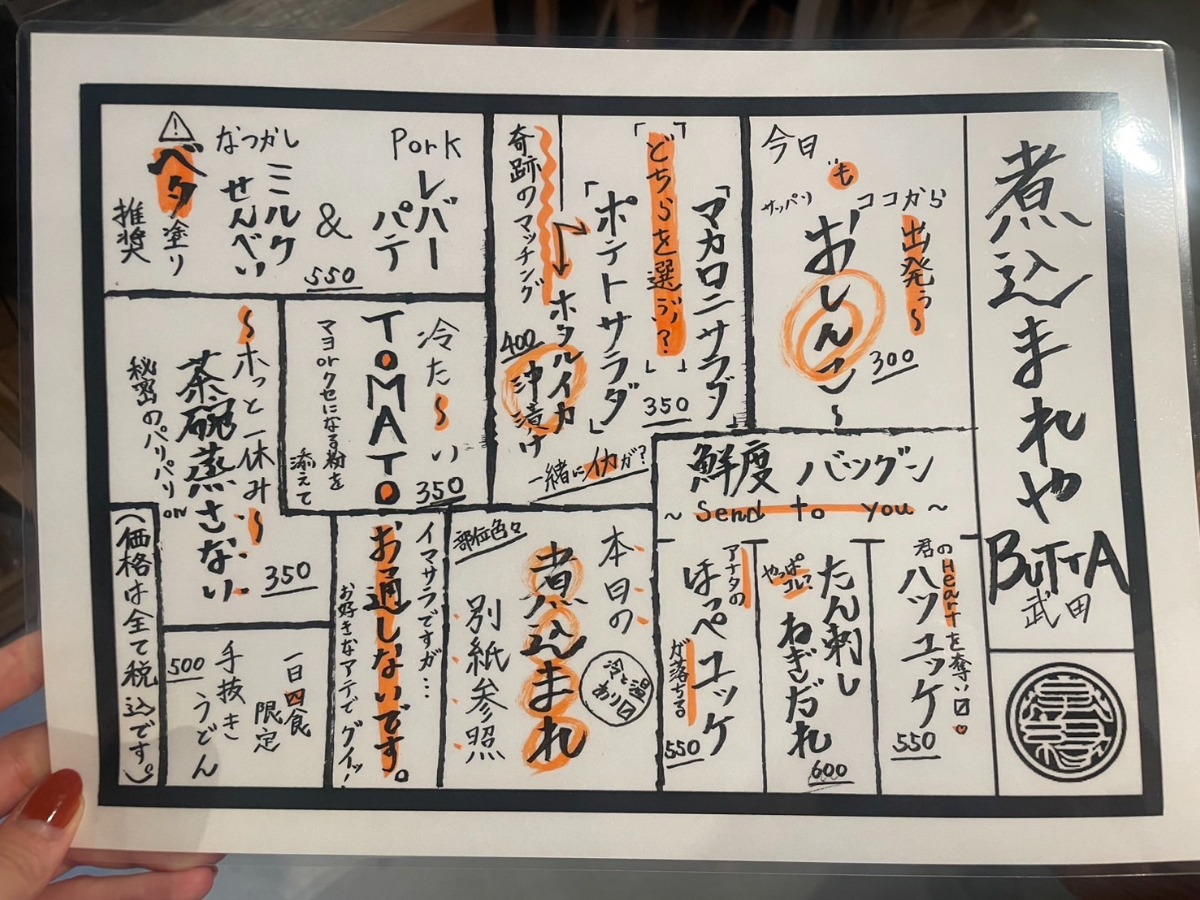 煮込まれや
BUTTA
武田
今日"も"
ココから
出発う〜
サッパリ
おしんこ〜
300
「マカロニサラダ」
「どちらを選ぶ?」
350
「ポテトサラダ」
奇跡のマッチング
ホタルイカ
沖漬け
400
一緒にイカが?
Pork
レバー
パテ
&
550
なつかし
ミルク
せんべい
⚠
ベタ塗り
推奨
冷た〜い
350
TOMATO
マヨorクセになる粉を
添えて
〜ホっと一休み〜
茶碗蒸さない
350
秘密のパリパリon
鮮度バツグン
〜Send to you〜
君のHeartを奪い
ハツユッケ
550
たん刺し
やっぱコレ?
ねぎだれ
600
アナタの
ほっぺユッケ
が落ちる
550
本日の
煮込まれ
部位色々
冷と温
あり
別紙参照
イマサラですが…
お通しないです。
お好きなアテでグイッ!
一日四食
限定
手抜き
うどん
500
(価格は全て税込です。)